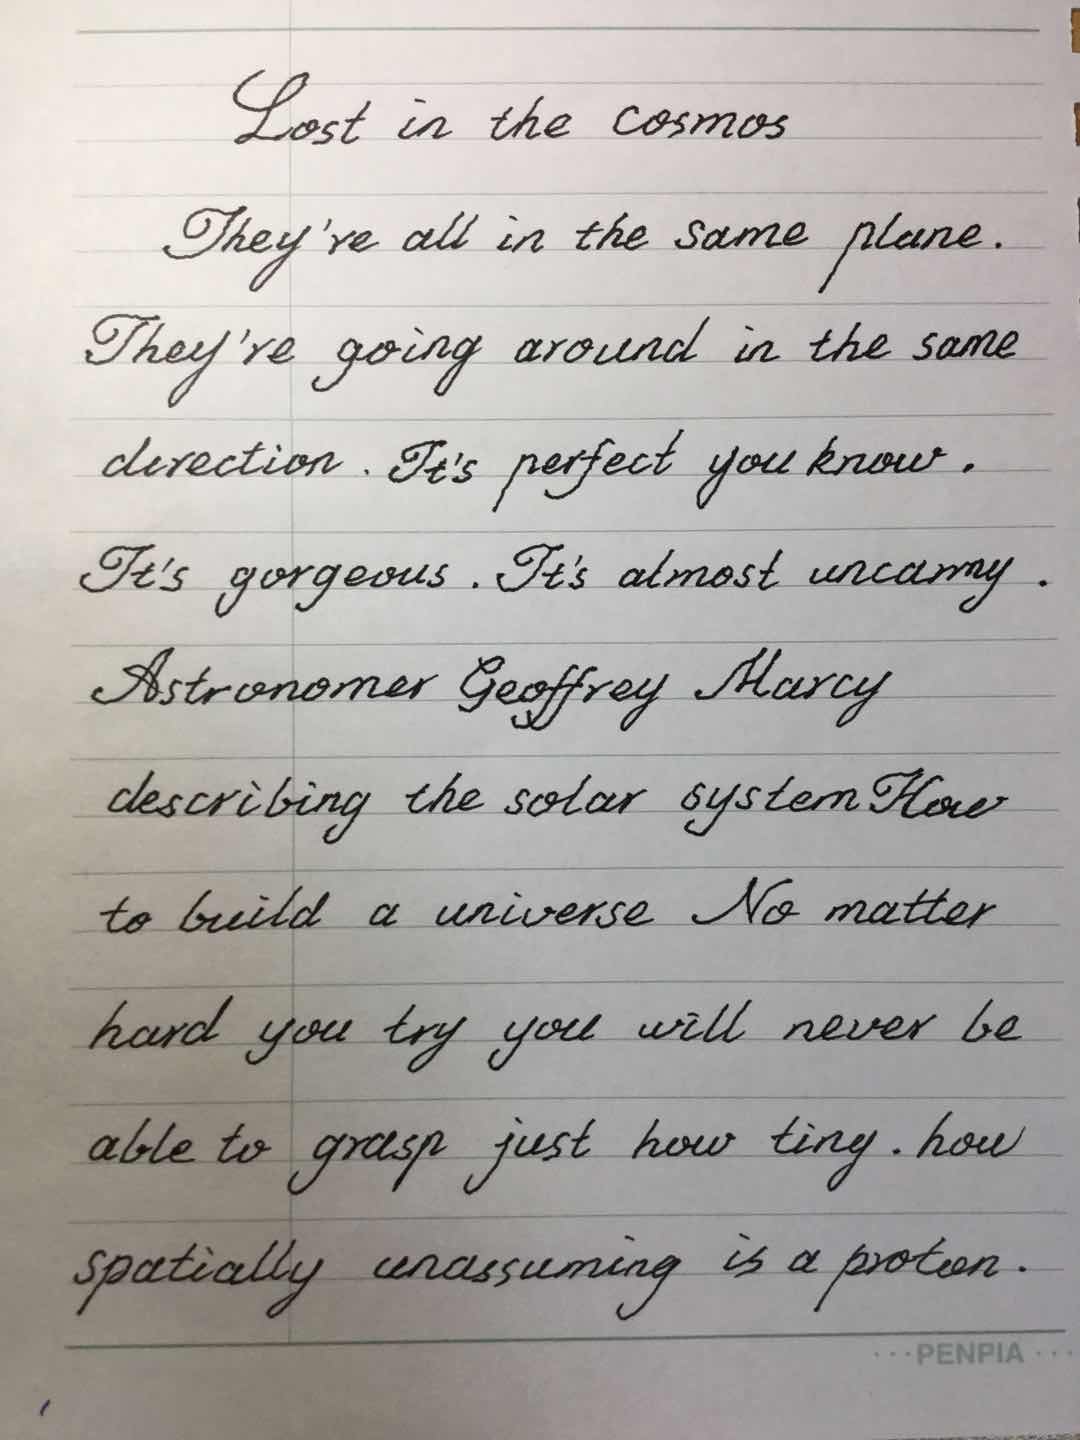 Lost in the cosmos
They're all in the same plane.
They're going around in the same
direction. It's perfect you know.
It's gorgeous. It's almost uncanny.
Astronomer Geoffrey Marcy
describing the solar system How
to build a universe No matter
hard you try you will never be
able to grasp just how tiny. how
spatially unassuming is a proton.
···PENPIA···